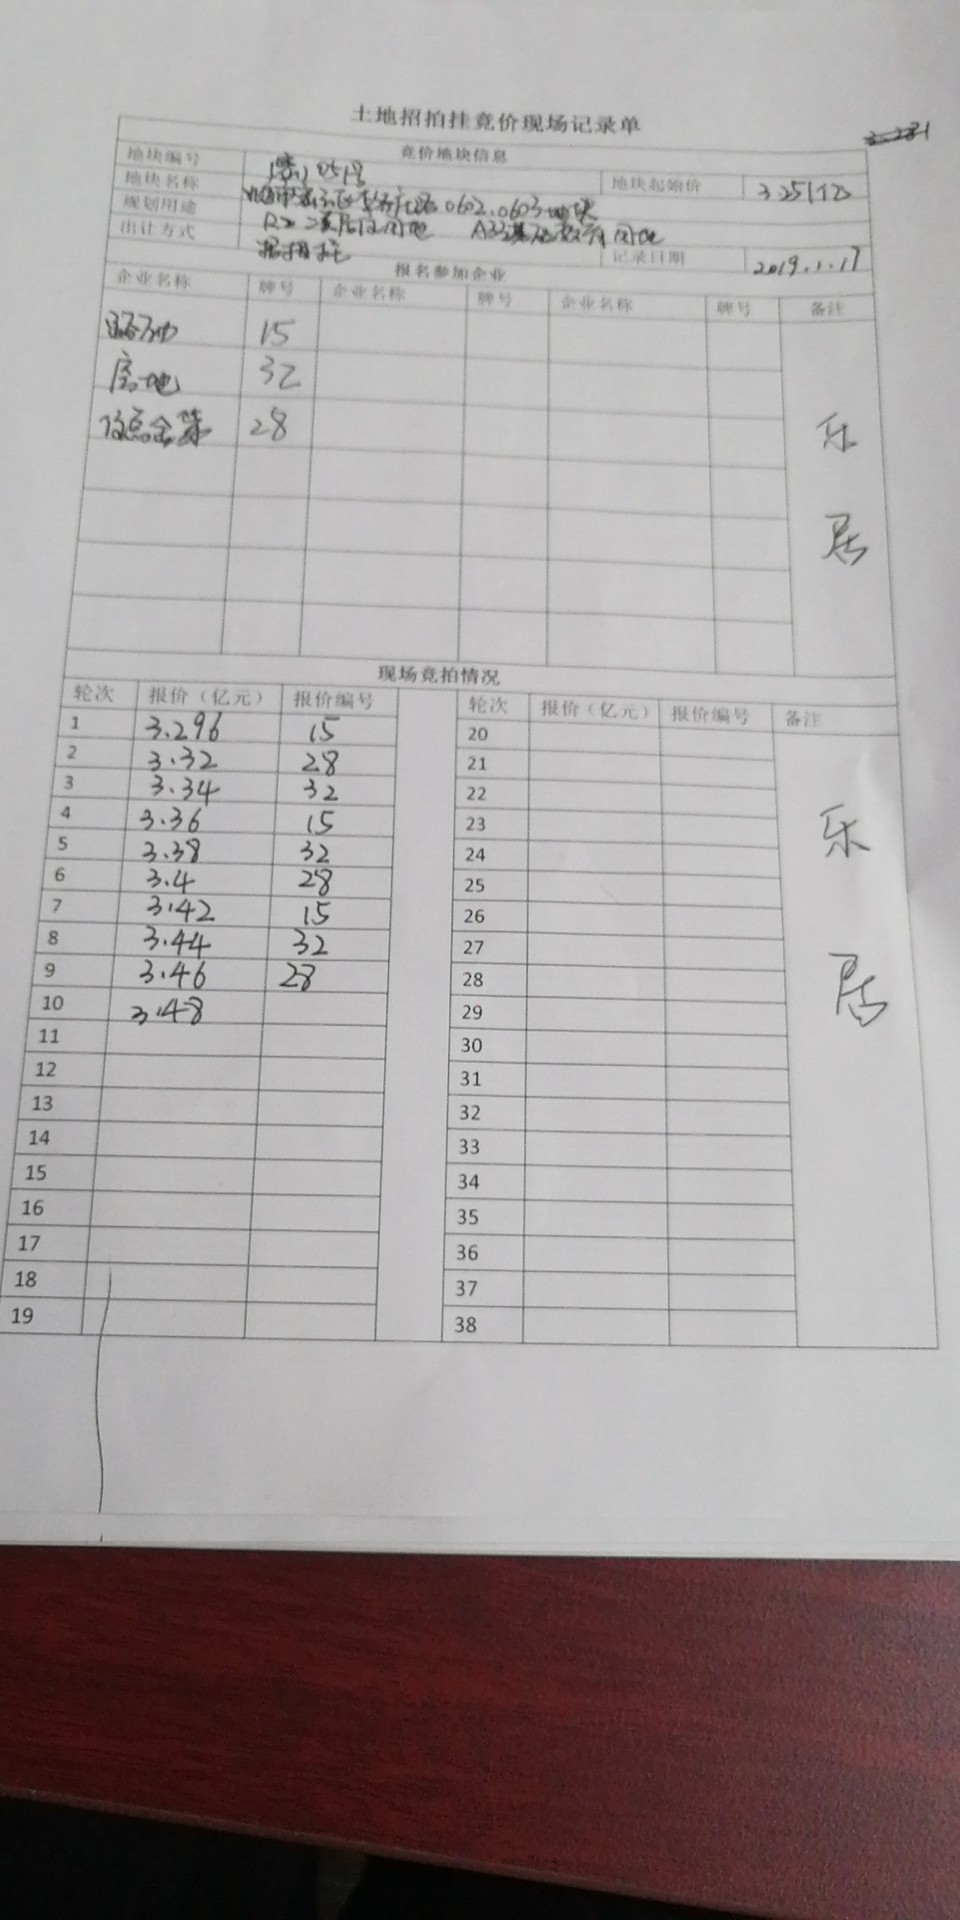 土地招拍挂竞价现场记录单
竞价地块信息
地块编号
地块名称 地块起始价 3.25亿
规划用途 0602、0603地块
R2二类居住用地 A33基础教育用地
出让方式 招拍挂 记录日期 2019.1.17
报名参加企业
企业名称 牌号 企业名称 牌号 企业名称 牌号 备注
15
房地 32
金茂 28
乐
居
现场竞拍情况
轮次 报价（亿元） 报价编号 轮次 报价（亿元） 报价编号 备注
1 3.296 15 20
2 3.32 28 21
3 3.34 32 22
4 3.36 15 23
5 3.38 32 24
6 3.4 28 25
7 3.42 15 26
8 3.44 32 27
9 3.46 28 28
10 3.48 29
11 30
12 31
13 32
14 33
15 34
16 35
17 36
18 37
19 38
乐
居